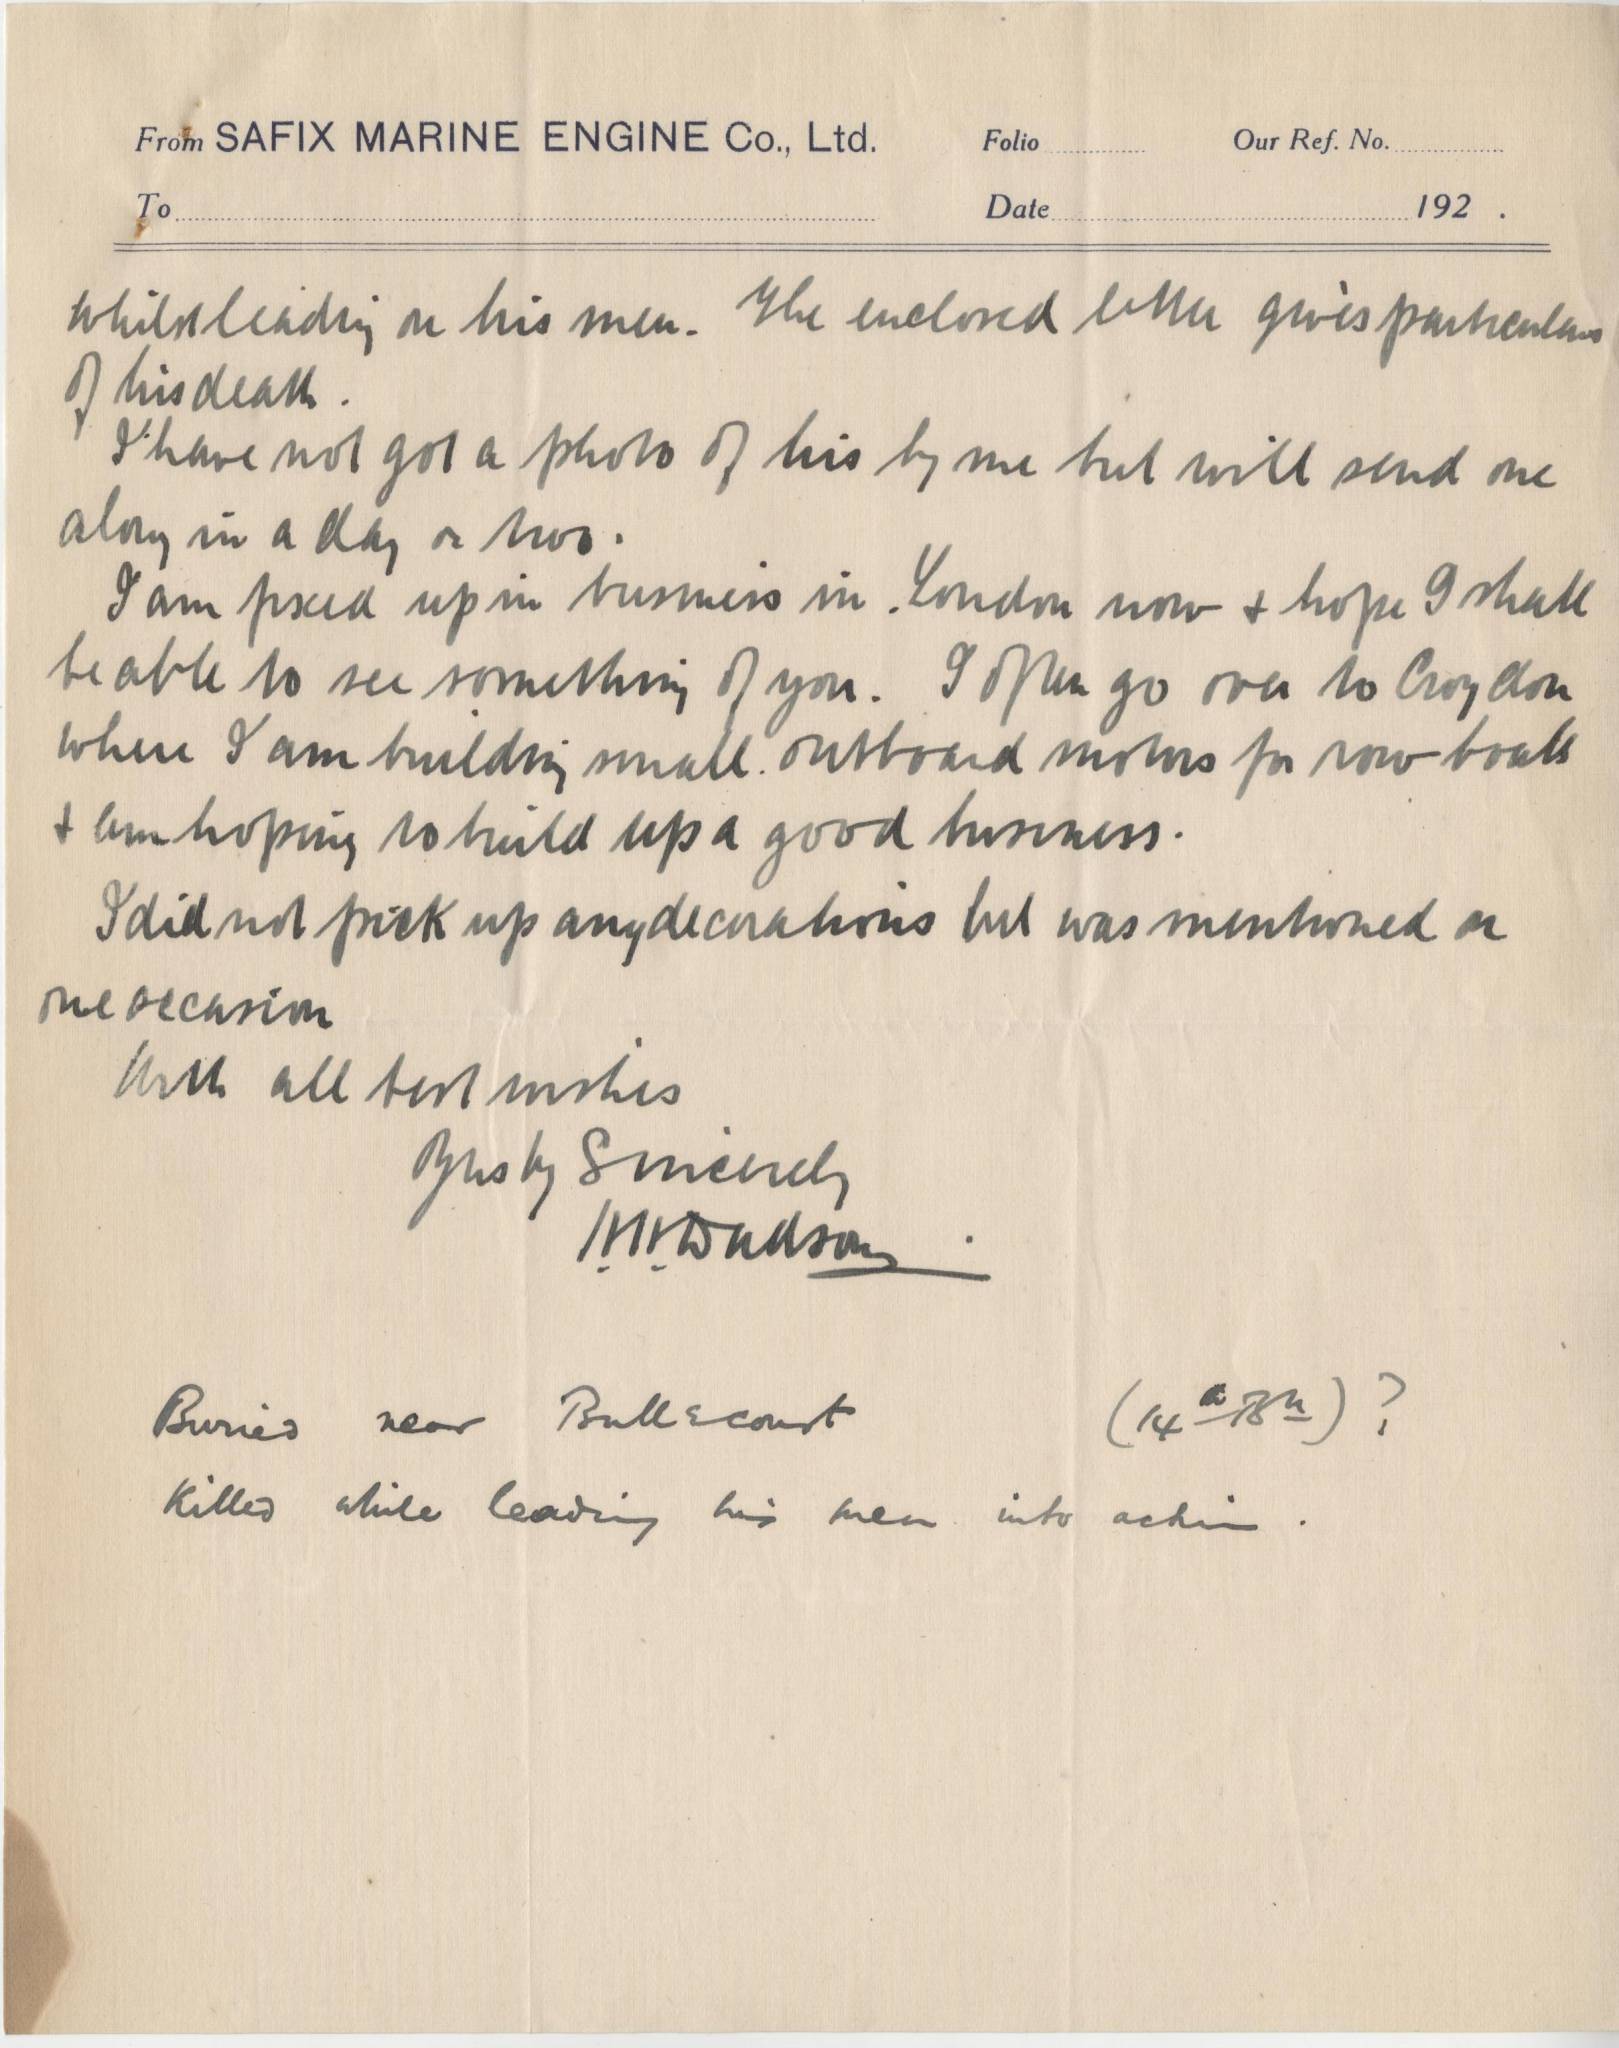 From SAFIX MARINE ENGINE Co., Ltd. Folio Our Ref. No.
To Date 192 .
whilst leading on his men. The enclosed letter gives particulars
of his death.
I have not got a photo of his by me but will send one
along in a day or two.
I am fixed up in business in London now & hope I shall
be able to see something of you. I often go over to Croydon
where I am building small outboard motors for row boats
& am hoping to build up a good business.
I did not pick up any decorations but was mentioned on
one occasion
With all best wishes
Sincerely
Dudson
Buried near Bullecourt (14th Bn) ?
Killed while leading his men into action.